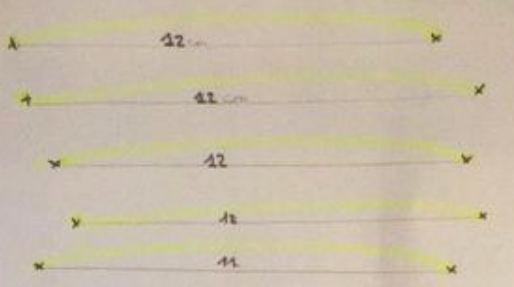 12 cm
12 cm
12
12
11